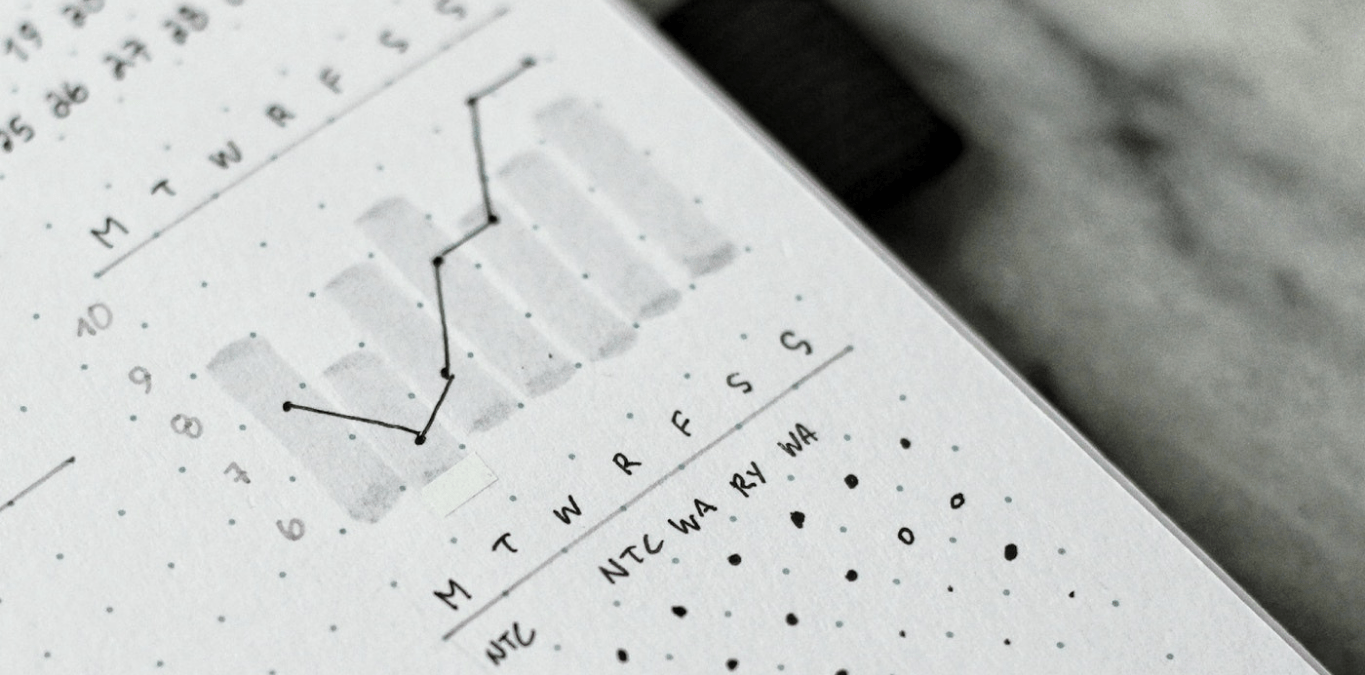 19 20
25 26 27 28
M T W R F S S
10
9
8
7
6
M T W R F S S
NTC NTC WA RY WA